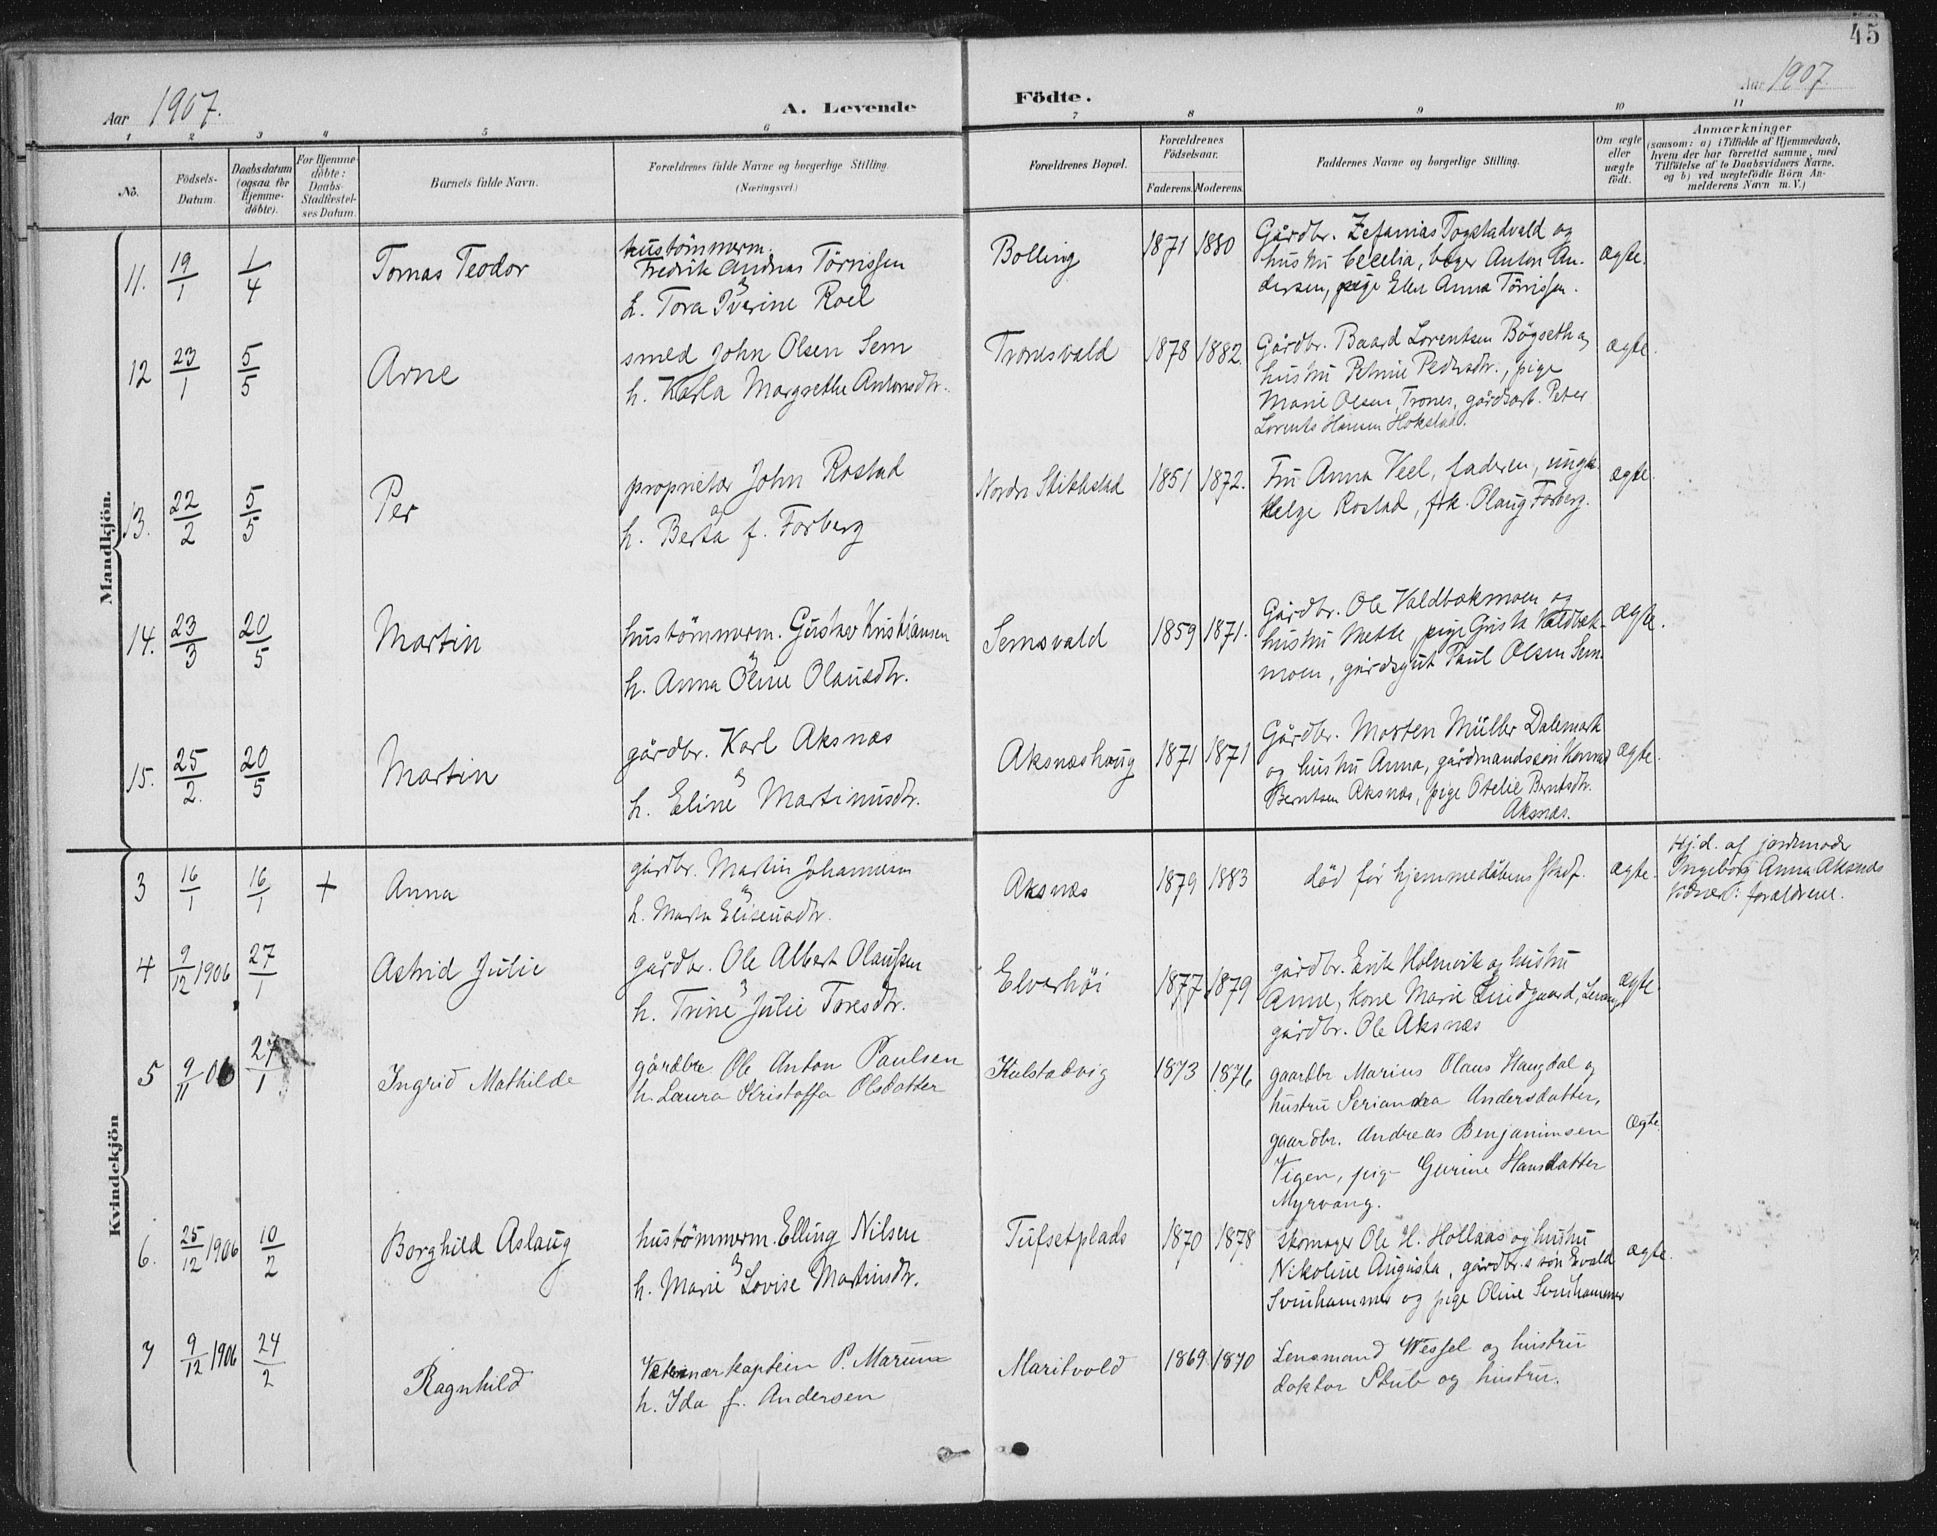 45
Aar 1907.
A. Levende
Födte.
Aar 1907.
1 2 3 4 5 6 7 8 9 10 11
No.
Födsels-
Datum.
Daabsdatum
(ogsaa for
Hjemme-
döbte).
For Hjemme
döbte:
Daabs-
Stadfæstel-
ses Datum.
Barnets fulde Navn.
Forældrenes fulde Navne og borgerlige Stilling.
(Næringsvei.)
Forældrenes Bopæl.
Forældrenes
Födselsaar.
Faderens. Moderens.
Faddernes Navne og borgerlige Stilling.
Om ægte
eller
uægte
født.
Anmærkninger
(saasom: a) i Tilfælde af Hjemmedaab,
hvem der har forrettet samme, med
Tilföielse af to Daabsvidners Navne.
og b) ved uægtefödte Börn An-
melderens Navn m. V.)
Mandkjön.
11. 19/1 1/4 Tomas Teodor
hustömmerm.
Fredrik Andreas Törrissen
og
h. Tora Iverine Roel
Bolling 1871 1880
Gårdbr. Zefanias Togstadvald og
hustru Cecelia, bager Anton An-
dersen, pige Elen Anna Törrissen.
ægte.
12 23/1 5/5 Arne
smed John Olsen Sem
h. Karla Margrethe Antonsdtr.
Tronesvald 1878 1882.
Gårdbr. Baard Lorentsen Bögseth og
hustru Petrine Pedersdtr., pige
Marie Olsen, Trones, gårdsarb. Peter
Lorents Hansen Hokstad.
ægte.
13. 22/2 5/5 Per
proprietær John Rostad
og
h. Berta f. Forberg
Nordre Stiklestad 1851 1872.
Fru Anna Veel, faderen, ungk.
Helge Rostad, frk. Olaug Forberg.
ægte.
14. 23/3 20/5 Martin
hustömmerm. Gustav Kristiansen
og
h. Anna Oline Olausdtr.
Semsvald 1859 1871.
Gårdbr. Ole Valdbækmoen og
hustru Mette, pige Gusta Valdbæk-
moen, gårdsgut Paul Olsen Sem.
ægte.
15. 25/2. 20/5 Martin
gårdbr. Karl Aksnæs
og
h. Eline Martinusdtr.
Aksnæshoug 1871 1871
Gårdbr. Morten Müller Dalemark
og hustru Anna, gårdmandssön Konrad
Berntsen Aksnæs, pige Otelie Berntsdtr.
Aksnæs.
ægte.
Kvindekjön
3 16/1 16/1 + Anna
gårdbr. Martin Johannesen
og
h. Marta Eliseusdtr.
Aksnæs 1879 1883
död för hjemmedåbens stadf.
ægte.
Hj.d. af jordmoder
Ingeborg Anna Aksnæs
Vidner: forældrene.
4 9/12 1906 27/1 Astrid Julie
gårdbr. Ole Albert Olaussen
og
h. Trine Julie Toresdtr.
Elverhöi 1877 1879
gårdbr. Erik Holmvik og hustru
Anne, kone Marie Lindgaard, Levanger
gårdbr. Ole Aksnæs
ægte.
5 9/11 06 27/1 Ingrid Mathilde
gårdbr Ole Anton Paulsen
h. Laura Kristoffa Olsdatter
Kulstadvig 1873 1876
gaardbr Marius Olaus Haugdal og
hustru Serianna Andersdatter,
gaardbr. Andreas Benjaminsen
Vigen, pige Gurine Hansdatter
Myrvang.
ægte.
6. 25/12 1906 10/2 Borghild Aslaug
hustömmerm. Elling Nilsen
og
h. Marie Lovise Martinsdtr.
Tufsetplads 1870 1878
Skomager Ole H. Hollaas og hustru
Nikoline Augusta, gårdbr.s sön Evald
Svinhammer og pige Oline Svinhammer
ægte.
7 9/12 1906 24/2 Ragnhild
Veterinærkaptein P.
h. Ida f. Andersen
Maritvold 1869 1870
Lensmand Wessel og hustru
doktor Stub og hustru.